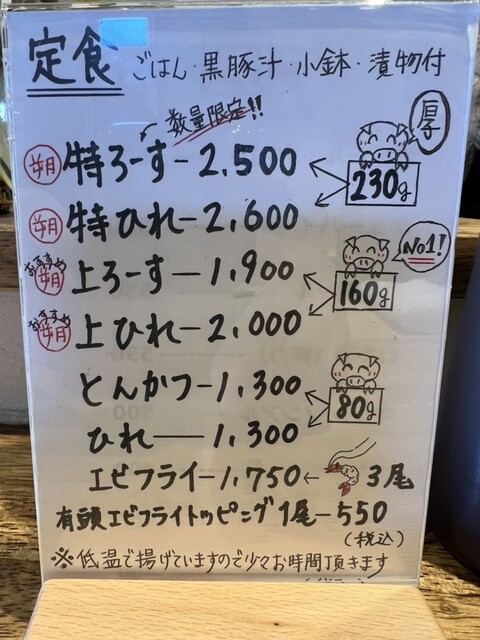 定食 ごはん・黒豚汁・小鉢・漬物付
数量限定!!
特ろーす-2,500
厚
230g
特ひれ-2,600
おすすめ 上ろーす-1,900
No1!
160g
おすすめ 上ひれ-2,000
とんかつ-1,300
80g
ひれ-1,300
エビフライ-1,750←3尾
有頭エビフライトッピング1尾-550
(税込)
※低温で揚げていますので少々お時間頂きます